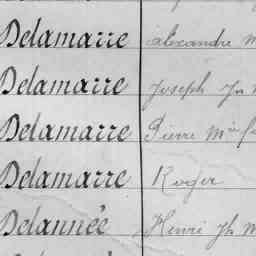 Delamarre Alexandre M
Delamarre Joseph Jn
Delamarre Pierre Mie
Delamarre Roger
Delannée Henri Jh M